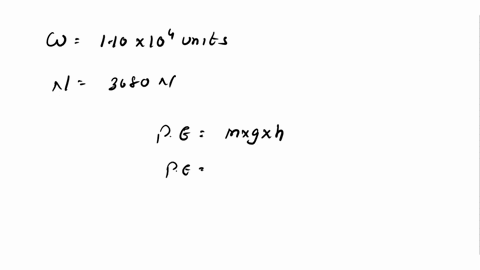 W = 1.10 x 10⁴ units
N = 3680 N
P.E = mxgxh
P.E =